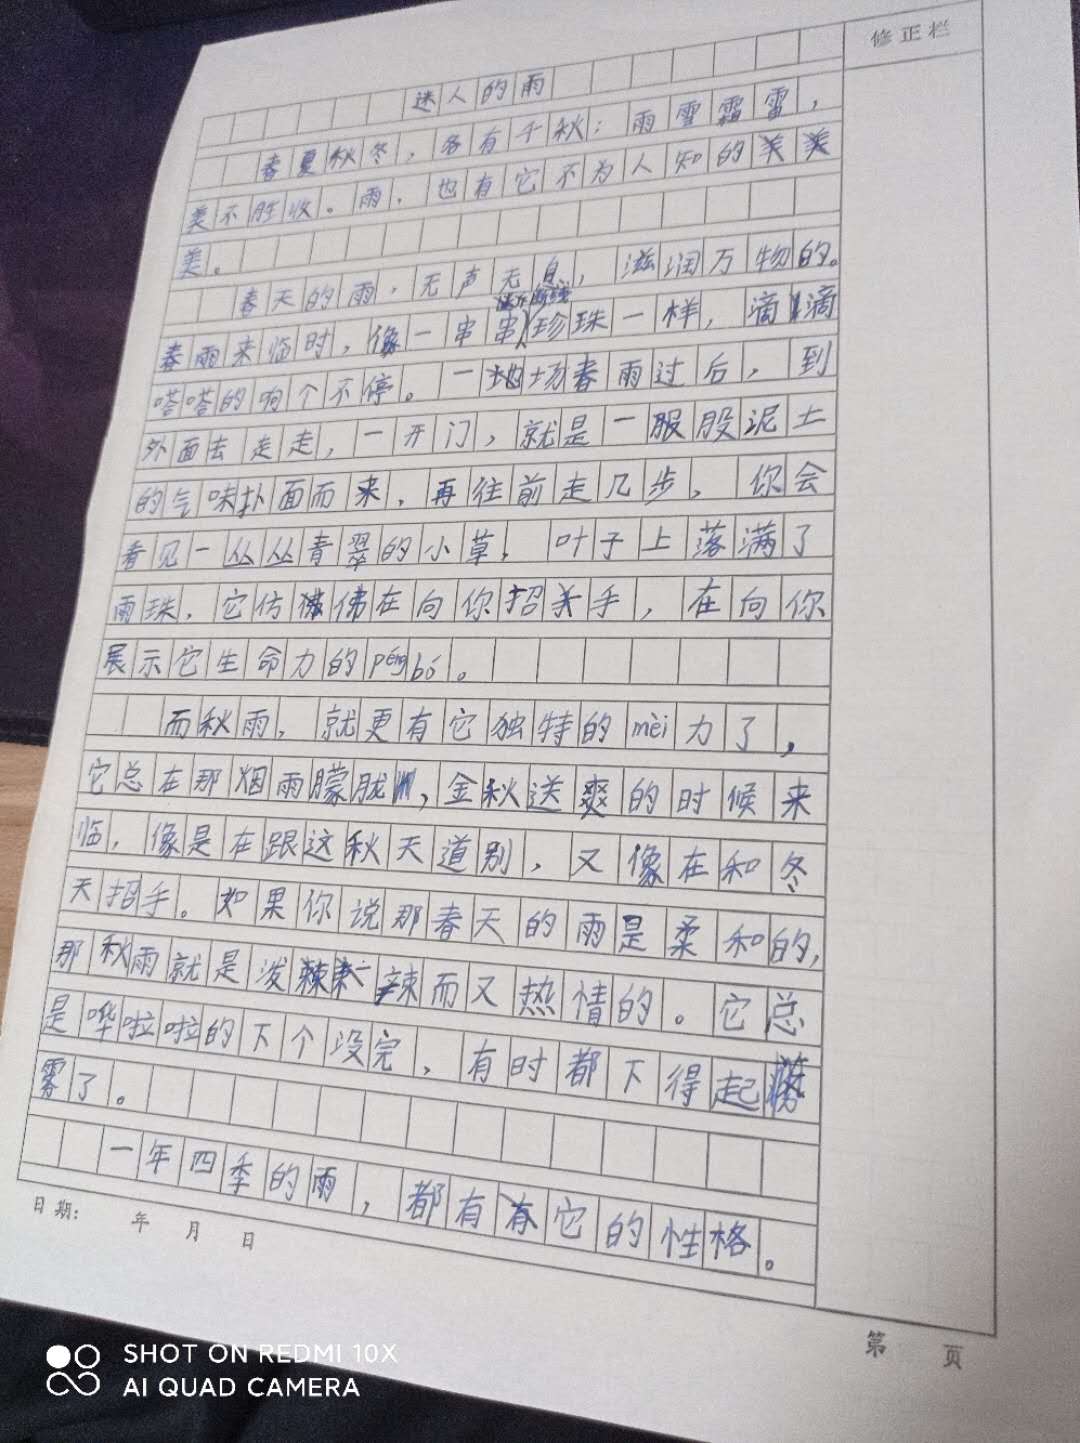 修正栏
迷人的雨
春夏秋冬，各有千秋；雨雪霜雷，
美不胜收。雨，也有它不为人知的
美。
春天的雨，无声无息，滋润万物的。
断线
春雨来临时，像一串串珍珠一样，滴滴
嗒嗒的响个不停。一场春雨过后，到
外面去走走，一开门，就是一股泥土
的气味扑面而来，再往前走几步，你会
看见一丛丛青翠的小草，叶子上落满了
雨珠，它仿佛在向你招手，在向你
展示它生命力的péngbó。
而秋雨，就更有它独特的mèi力了，
它总在那烟雨朦胧，金秋送爽的时候来
临，像是在跟这秋天道别，又像在和冬
天招手。如果你说那春天的雨是柔和的，
那秋雨就是泼辣而又热情的。它总
是哗啦啦的下个没完，有时都下得起
雾了。
一年四季的雨，都有它的性格。
日期： 年 月 日
第 页
SHOT ON REDMI 10X
AI QUAD CAMERA